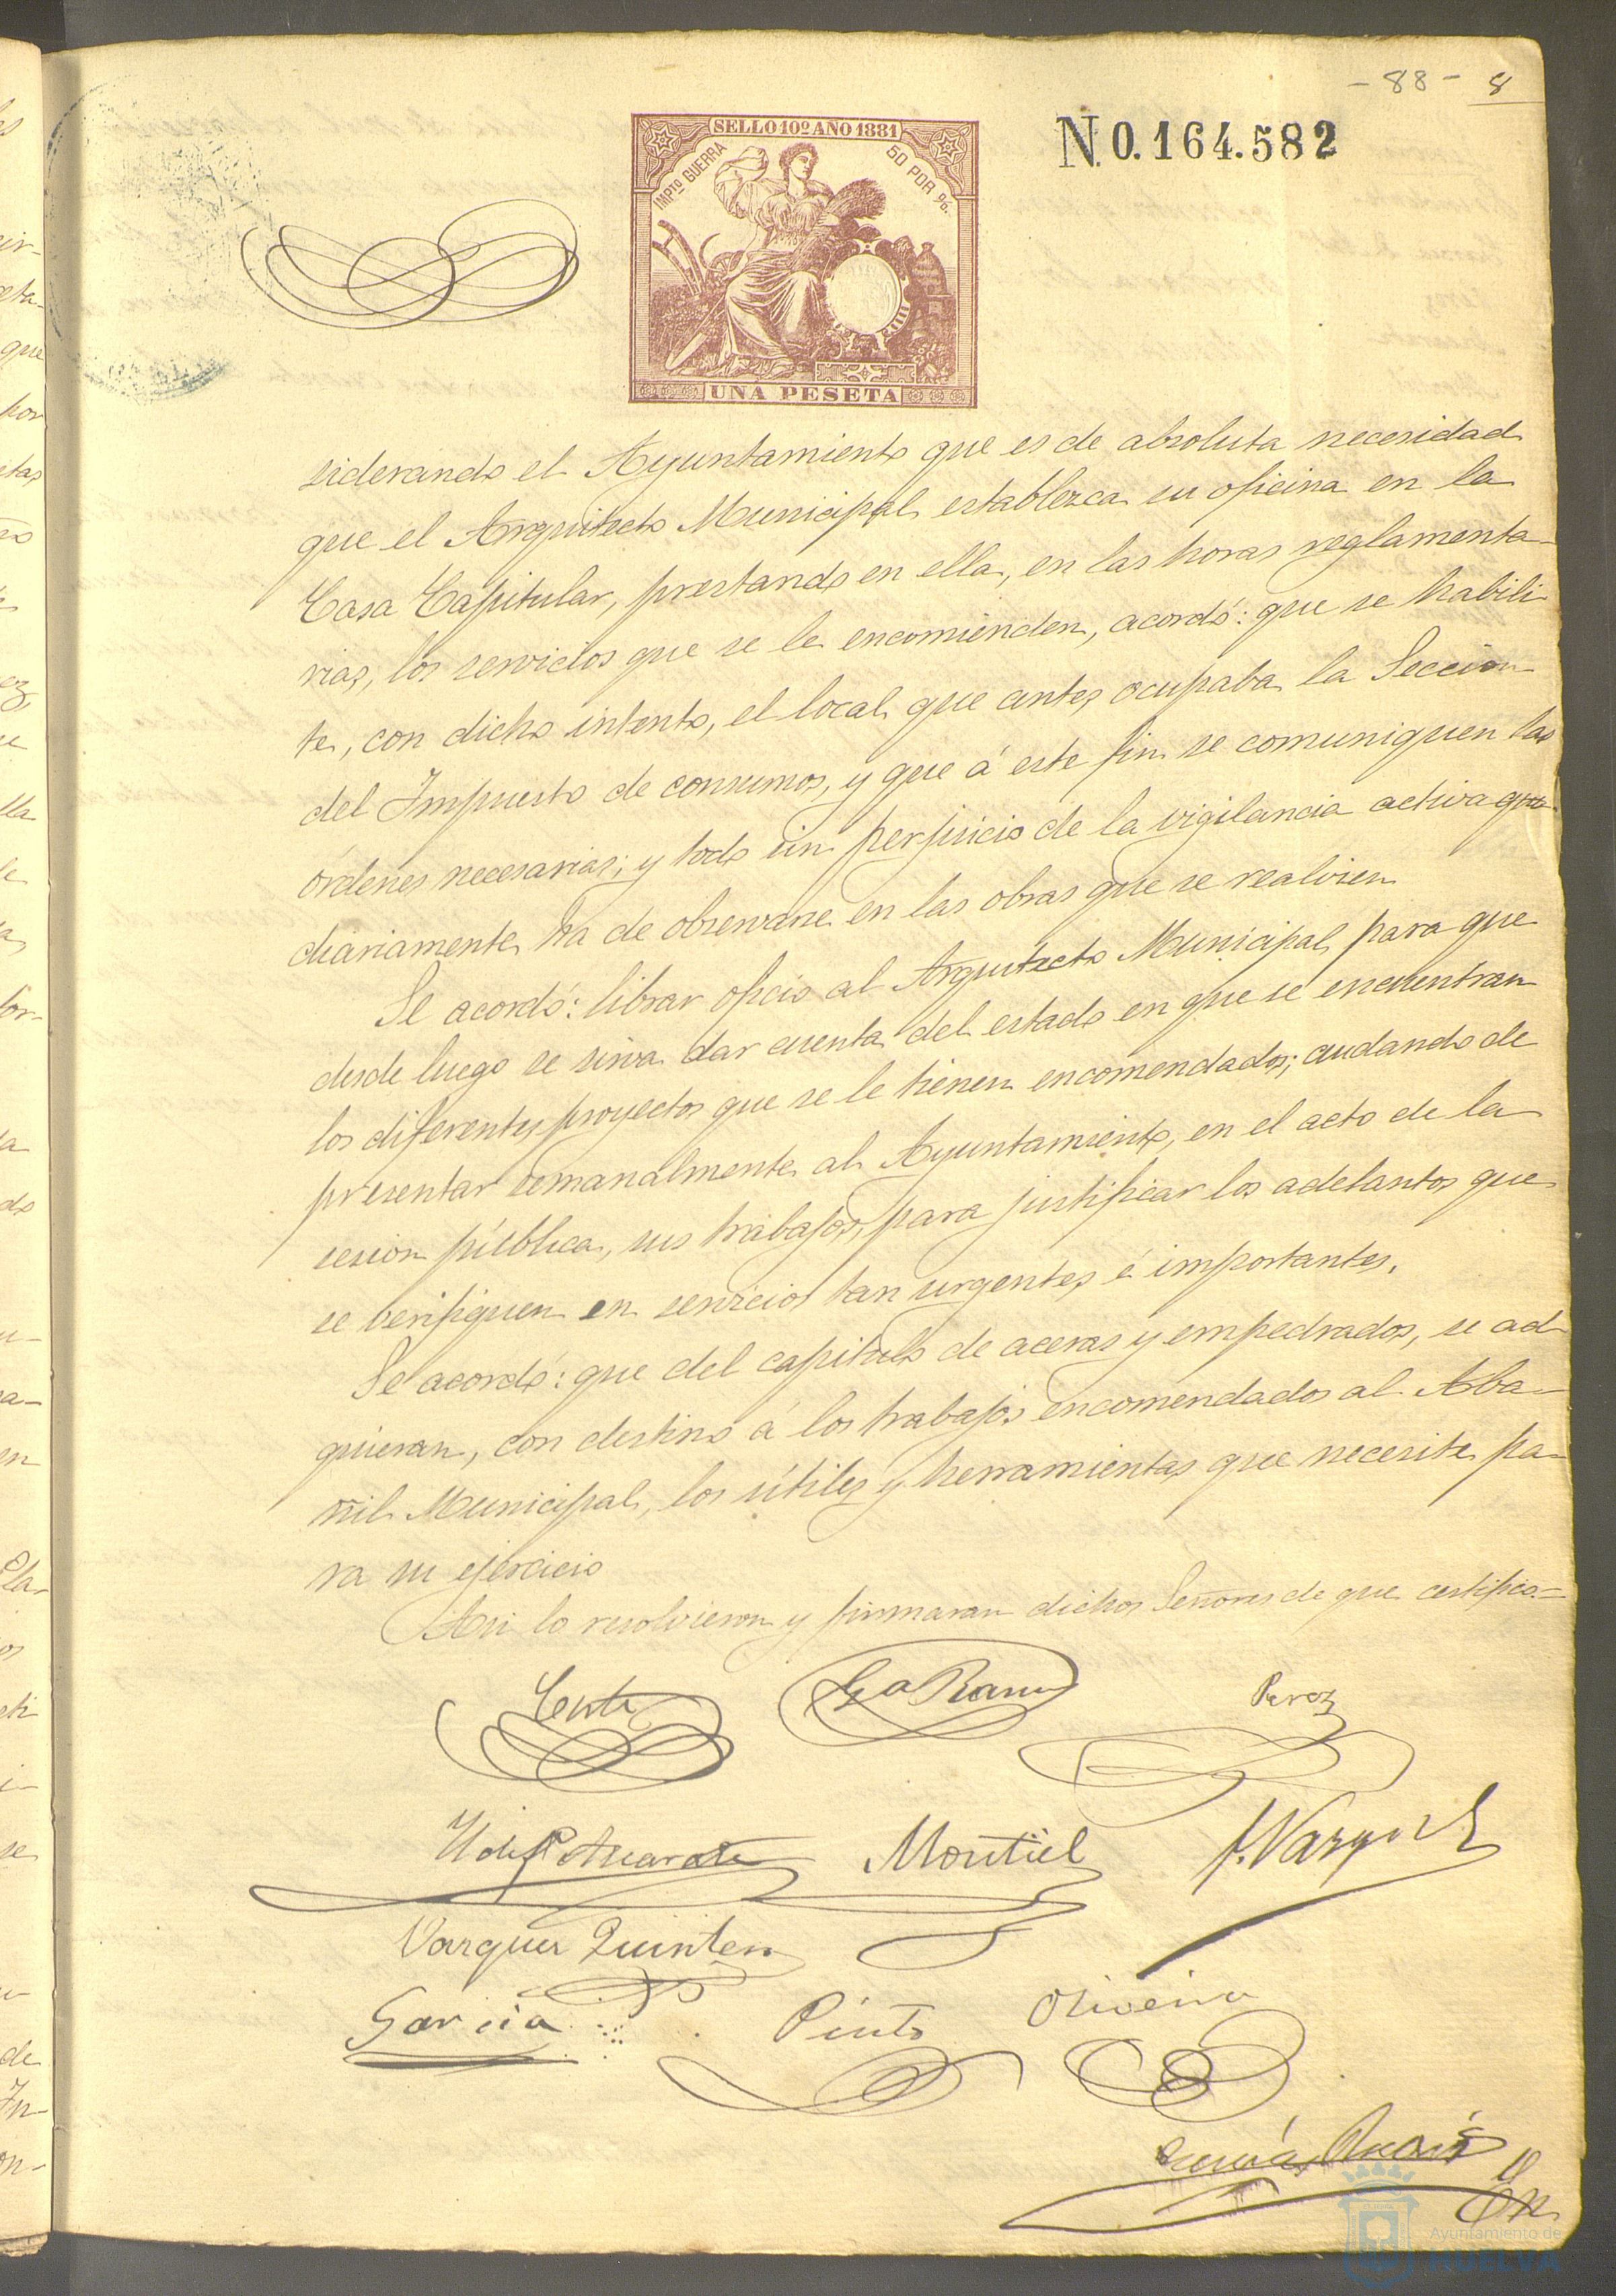 - 88 - 8
SELLO 10º AÑO 1881
IMPTO GUERRA 50 POR %.
UNA PESETA
N. 0.164.582
siderando el Ayuntamiento que es de absoluta necesidad
que el Arquitecto Municipal establezca su oficina en la
Casa Capitular, prestando en ella, en las horas reglamenta-
rias, los servicios que se le encomienden, acordó: que se habili-
te, con dicho intento, el local que antes ocupaba la Seccion
del Impuesto de consumos, y que á este fin se comuniquen las
órdenes necesarias; y todo sin perjuicio de la vigilancia activa que
diariamente ha de observarse en las obras que se realicen
Se acordó: librar oficio al Arquitecto Municipal para que
desde luego se sirva dar cuenta del estado en que se encuentran
los diferentes proyectos que se le tienen encomendados; cuidando de
presentar semanalmente al Ayuntamiento, en el acto de la
sesion pública, sus trabajos, para justificar los adelantos que
se verifiquen en servicios tan urgentes é importantes.
Se acordó: que del capitulo de aceras y empedrados, se ad-
quieran, con destino á los trabajos encomendados al Alba-
ñil Municipal, los útiles y herramientas que necesite pa-
ra su ejercicio
Asi lo resolvieron y firmaran dichos Señores de que certifico.=
Gª Ramos Perez
Montiel F. Vazquez
Vazquez Quintero
Garcia Pinto Oliveira
Ayuntamiento de
HUELVA